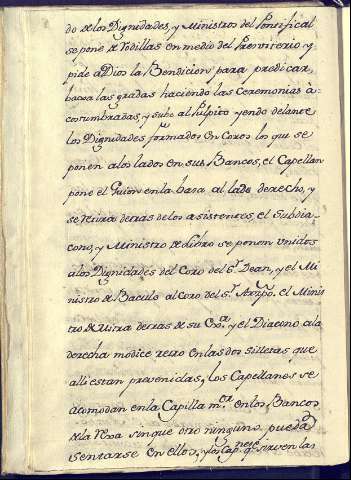 do de los Dignidades, y Ministros del Pontifical
se pone de Rodillas en medio del Presviterio y
pide a Dios la Bendicion para predicar,
baxa las gradas haciendo las Ceremonias à-
costumbradas, y sube al Pulpito yendo delante
los Dignidades formados en Coros los que se
ponen a los lados en sus Bancos, el Capellan
pone el Guion en la basa al lado derecho, y
se retira detras de los asistentes, el Subdia-
cono, y Ministro de Libro se ponen unidos
a los Dignidades del Coro del Sr. Dean, y el Mi
nistro de Baculo al Coro del Sr. Arzpo. el Minis
tro de Mitra detras de su Exa. y el Diacono a la
derecha modice retro en las dos silletas que
alli estan prevenidas, los Capellanes se
acomodan en la Capilla mor. en los Bancos
de la Rexa sin que otro ninguno pueda
sentarse en ellos, y los Cap.s q.e sirven las